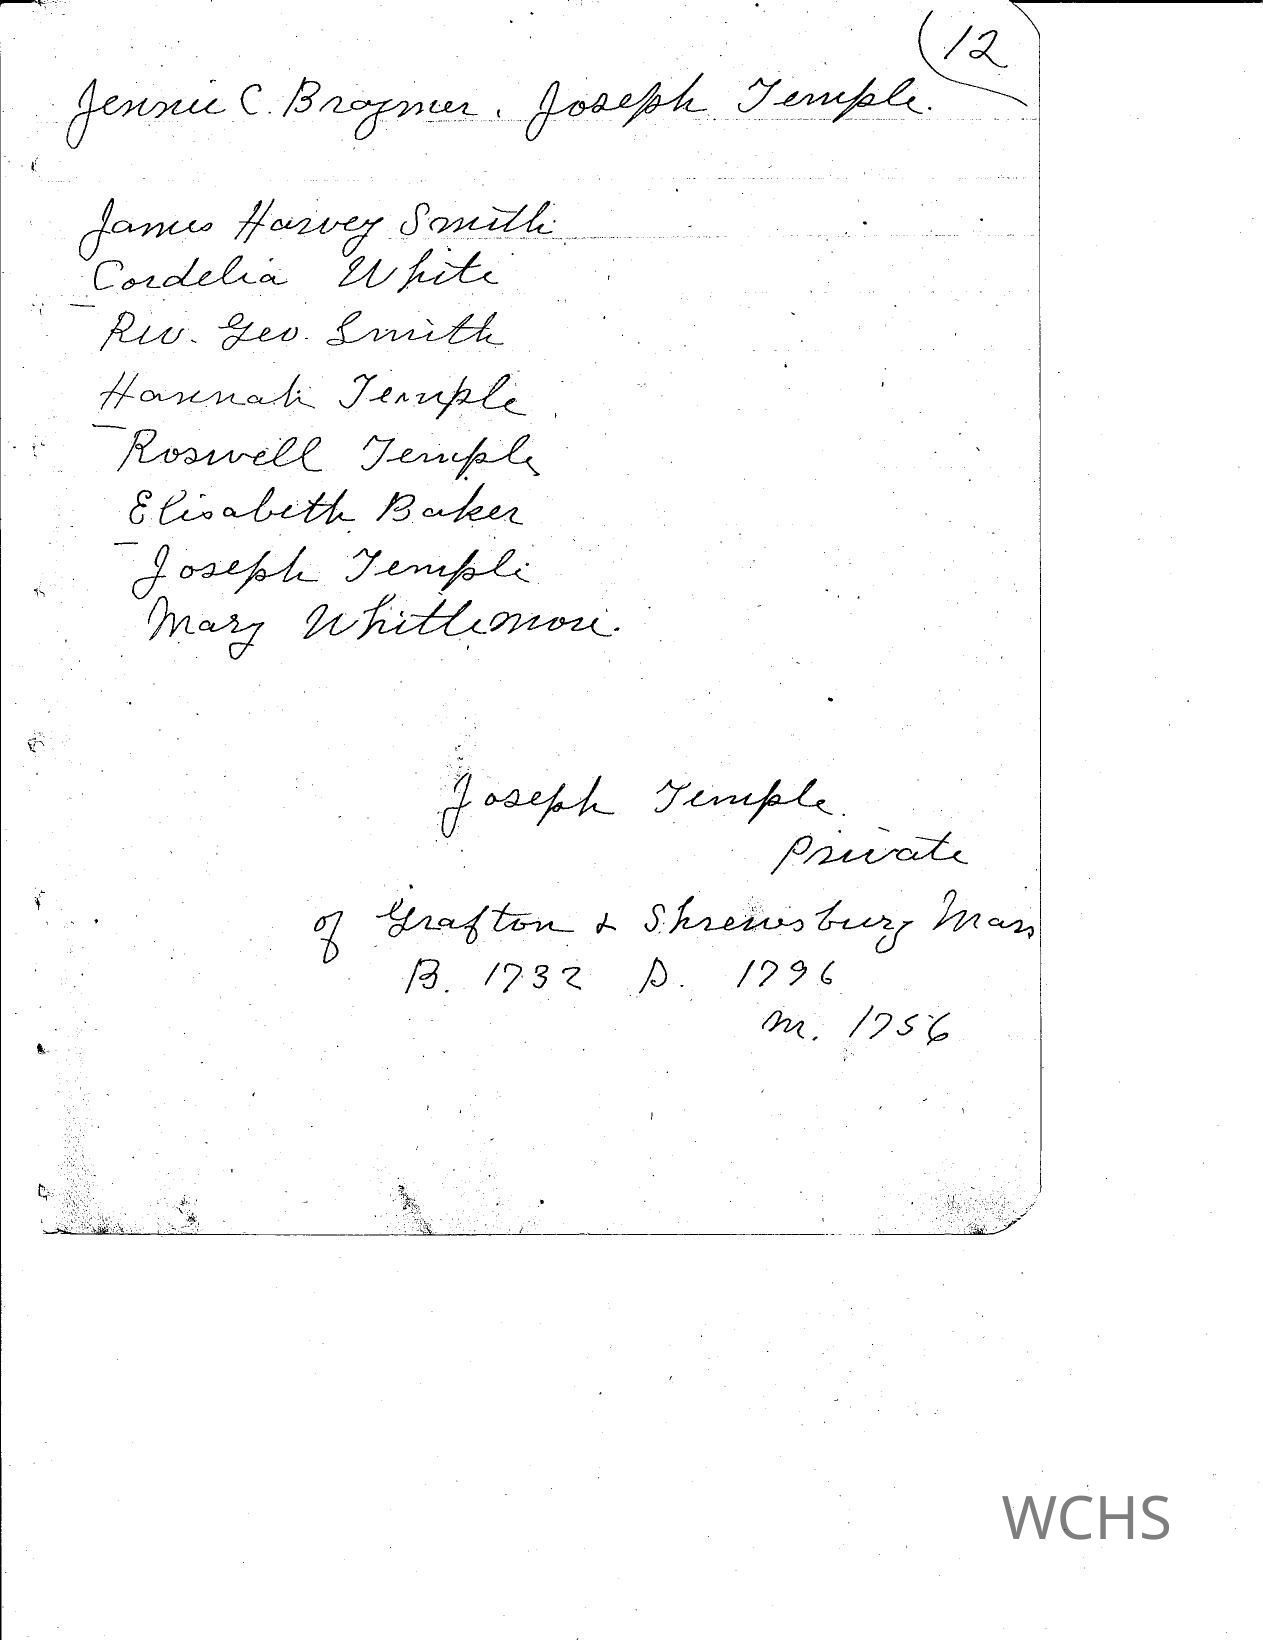 12
Jennie C. Brozmer. Joseph Temple.
James Harvey Smith
Cordelia White
Rev. Geo. Smith
Hannah Temple
Roswell Temple
Elisabeth Baker
Joseph Temple
Mary Whittemore.
Joseph Temple.
Private
of Grafton & Shrewsbury Mass
B. 1732 D. 1796
m. 1756
WCHS